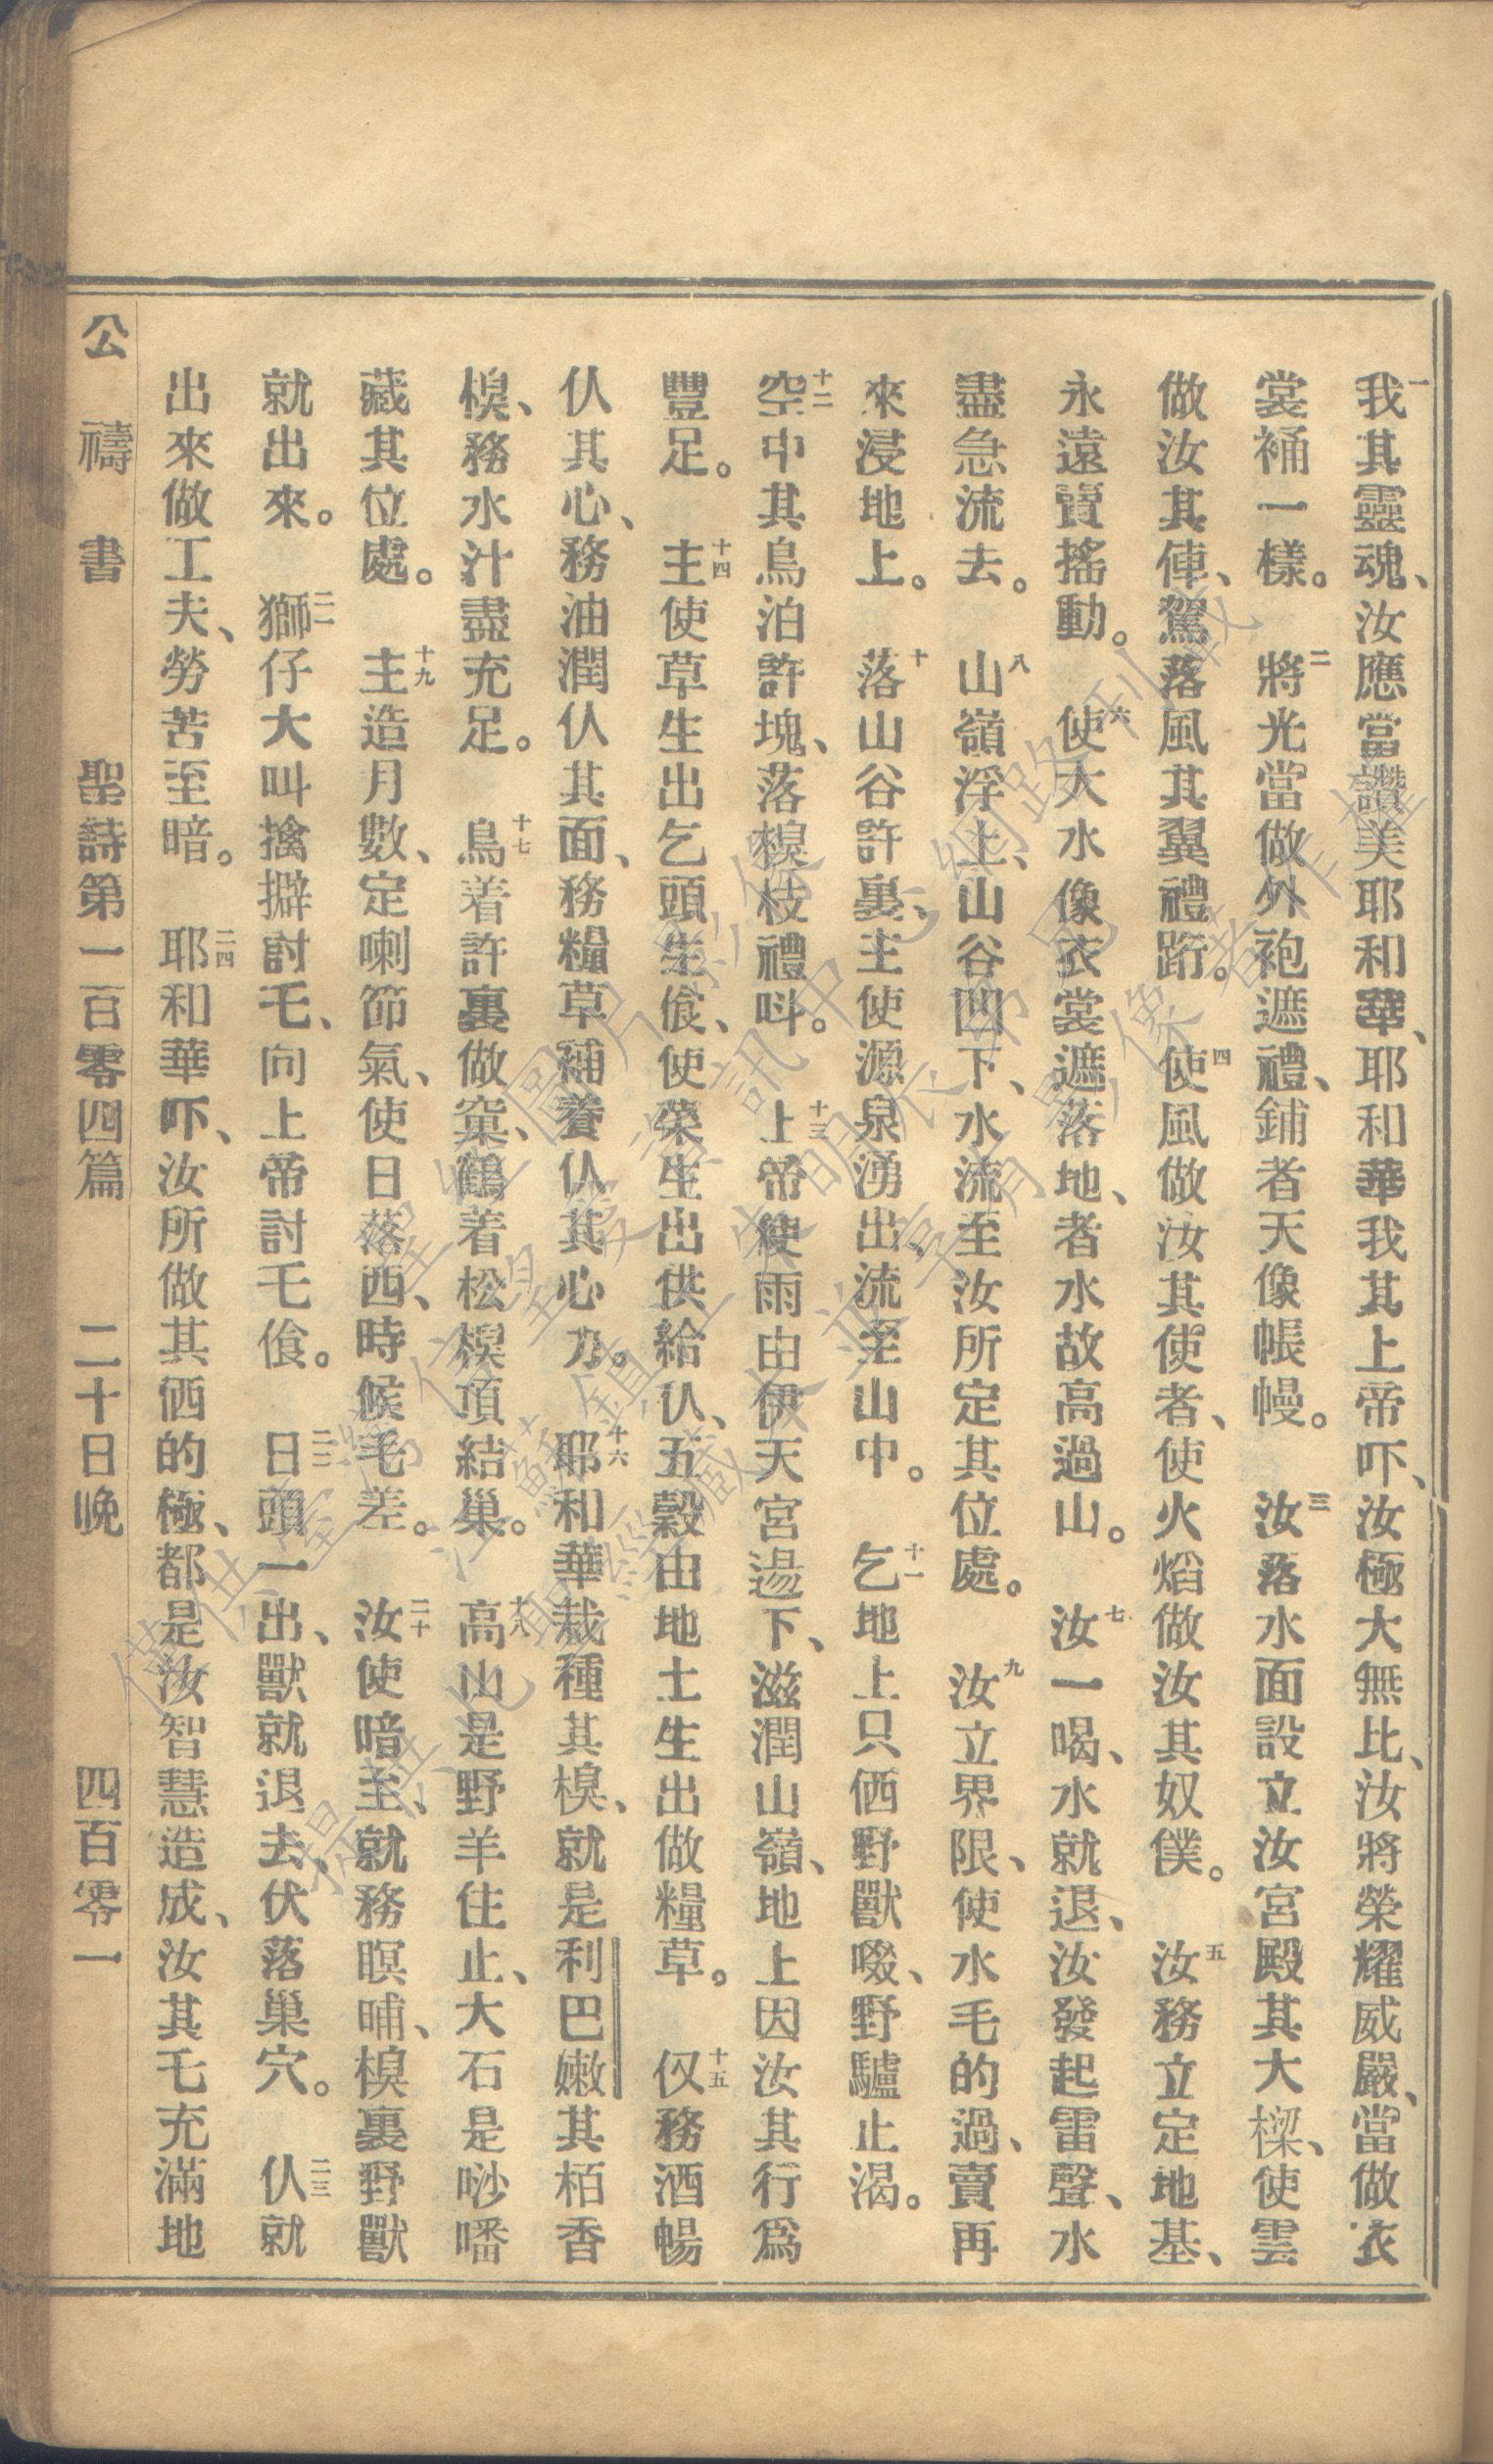 一我其靈魂、汝應當讚美耶和華、耶和華我其上帝吓、汝極大無比、汝將榮耀威嚴、當做衣
裳䘄一樣。二將光當做外袍遮禮、鋪者天像帳幔。三汝落水面設立汝宮殿其大樑、使雲
做汝其俥、駕落風其翼禮跨。四使風做汝其使者、使火焰做汝其奴僕。五汝務立定地基、
永遠賣搖動。六使大水像衣裳遮落地、者水故高過山。七汝一喝、水就退、汝發起雷聲、水
盡急流去。八山嶺浮上、山谷凹下、水流至汝所定其位處。九汝立界限、使水毛的過、賣再
來浸地上。十落山谷許裏、主使源泉湧出流至山中。十一乞地上只㐁野獸啜、野驢止渴。
十二空中其鳥泊許塊、落槼枝禮呌。十三上帝使雨由伊天宮逿下、滋潤山嶺、地上因汝其行爲
豐足。十四主使草生出乞頭生飡、使菜生出供給仈、五穀由地土生出做糧草。十五仅務酒暢
仈其心、務油潤仈其面、務糧草補養仈其心力。十六耶和華栽種其槼、就是利巴嫩其栢香
槼、務水汁盡充足。十七鳥着許裏做窠、鶴着松槼頂結巢。十八高山是野羊住止、大石是唦噃
藏其位處。十九主造月數、定喇節氣、使日落西、時候毛差。二十汝使暗至、就務暝晡、槼裏野獸
就出來。二一獅仔大叫擒擗討乇、向上帝討乇飡。二二日頭一出、獸就退去、伏落巢穴。二三仈就
出來做工夫、勞苦至暗。二四耶和華吓、汝所做其㐁的極、都是汝智慧造成、汝其乇充滿地
公禱書 聖詩第一百零四篇 二十日晚 四百零一